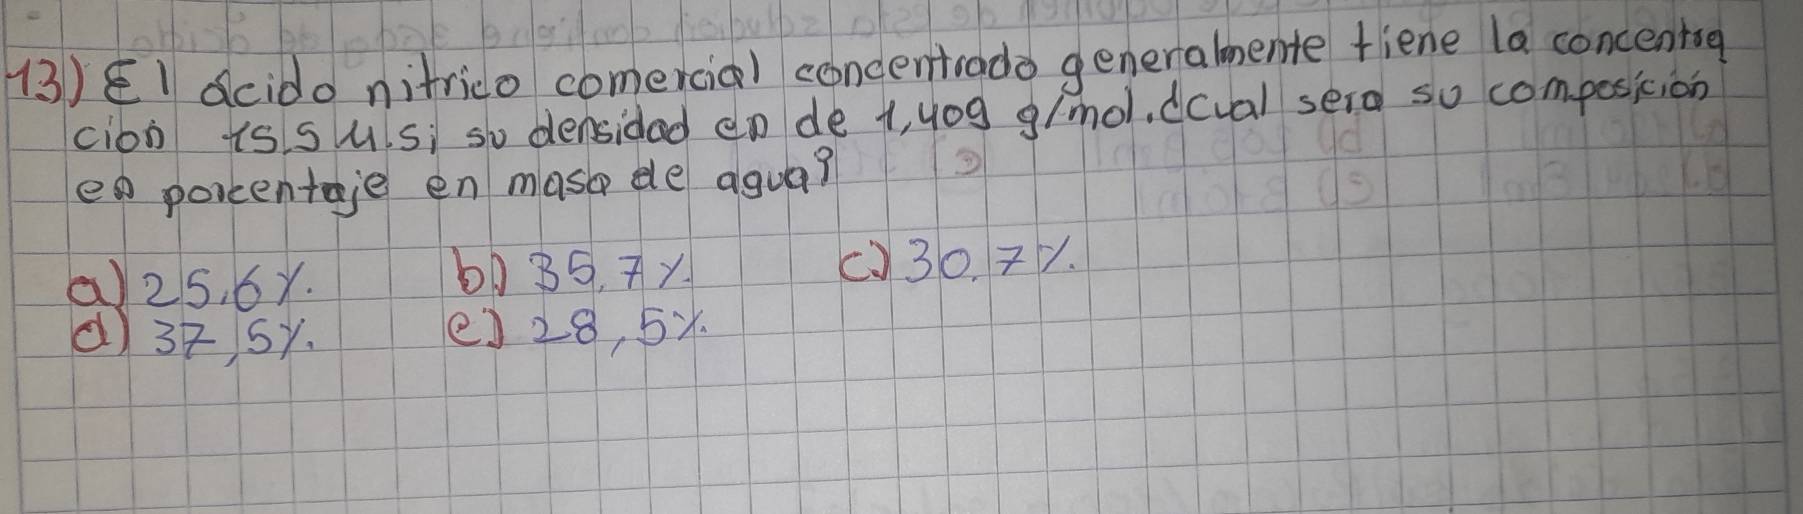 13) El ácido nitrico comercial concentrado generalmente tiene la concentra
cion 15,5 M. si su densidad en de 1,409 g/mol. ¿cual sera su composición
en porcentaje en masa de agua?
a) 25,6%. b) 35,7%. c) 30,7%.
d) 37,5%. e) 28,5%.